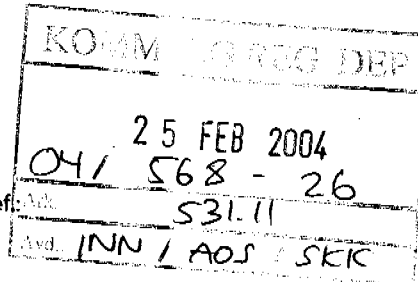 KOMM OG REG DEP
25 FEB 2004
04/ 568 - 26
ef. Ark. 531.11
Avd. INN / AOS / SKK